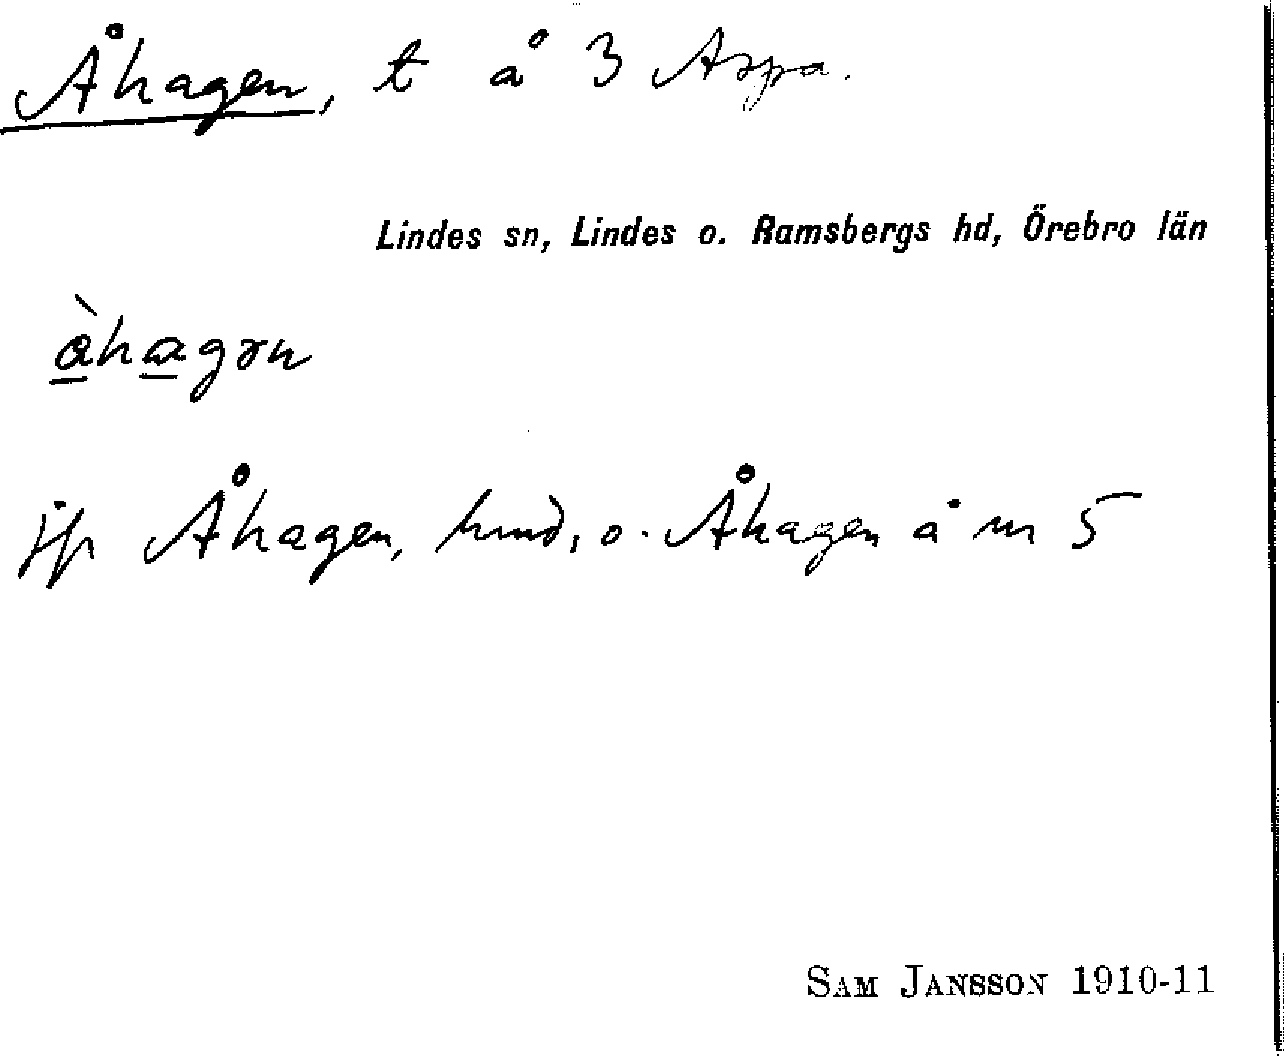 Åhagen, t å 3 Aspa.
Lindes sn, Lindes o. Ramsbergs hd, Örebro län
å̀hagən
jfr Åhagen, hmd, o. Åhagen å m 5
SAM JANSSON 1910-11